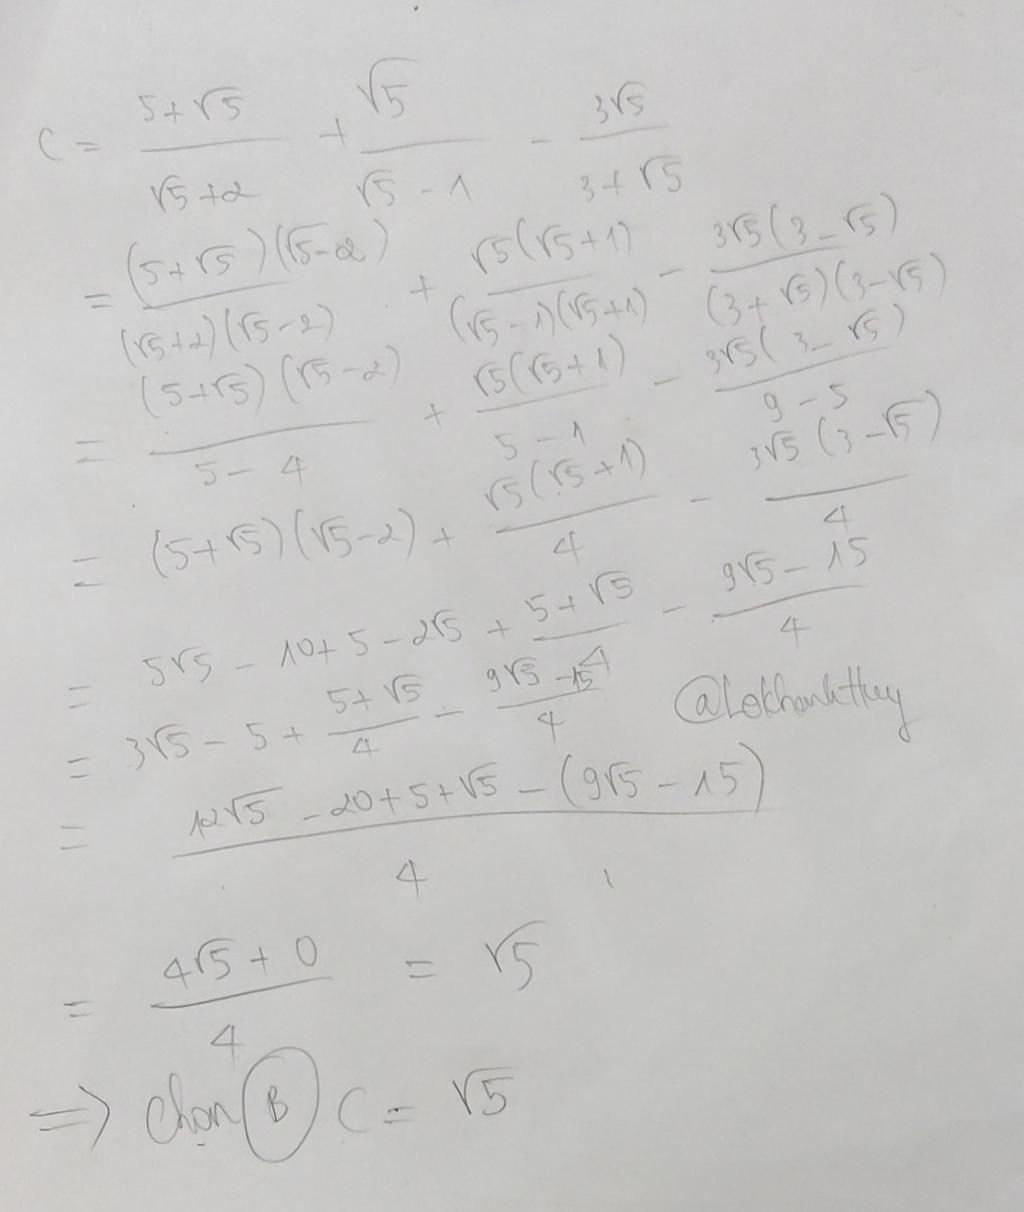 C = (5+√5)/(√5+2) + √5/(√5-1) - 3√5/(3+√5)
= (5+√5)(√5-2)/(√5+2)(√5-2) + √5(√5+1)/(√5-1)(√5+1) - 3√5(3-√5)/(3+√5)(3-√5)
= (5+√5)(√5-2)/(5-4) + √5(√5+1)/(5-1) - 3√5(3-√5)/(9-5)
= (5+√5)(√5-2) + √5(√5+1)/4 - 3√5(3-√5)/4
= 5√5 - 10+5-2√5 + (5+√5)/4 - (9√5-15)/4
= 3√5 - 5 + (5+√5)/4 - (9√5-15)/4
@Lekhanhthuy
= (12√5 - 20+5+√5 - (9√5-15))/4
= (4√5+0)/4 = √5
=> Chọn B C = √5